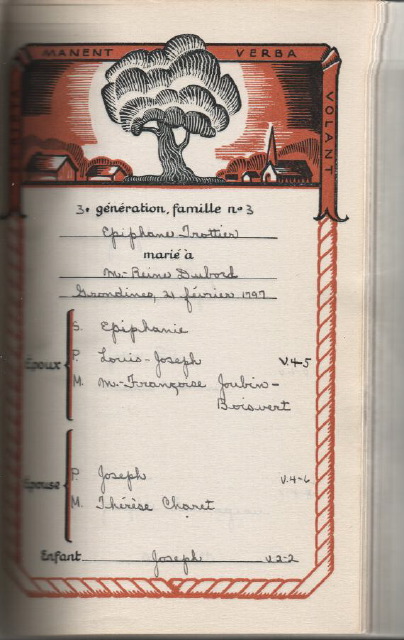 MANENT VERBA VOLANT
3e génération, famille no 3
Epiphane Trottier
marié à
M-Reine Dubord
Grondines, 21 février 1797
S. Epiphanie
Epoux
P. Louis-Joseph V.4-5
M. M-Françoise Joubin-
Boisvert
P. Joseph V.4-6
Epouse
M. Thérèse Charet
Enfant Joseph V.2-2